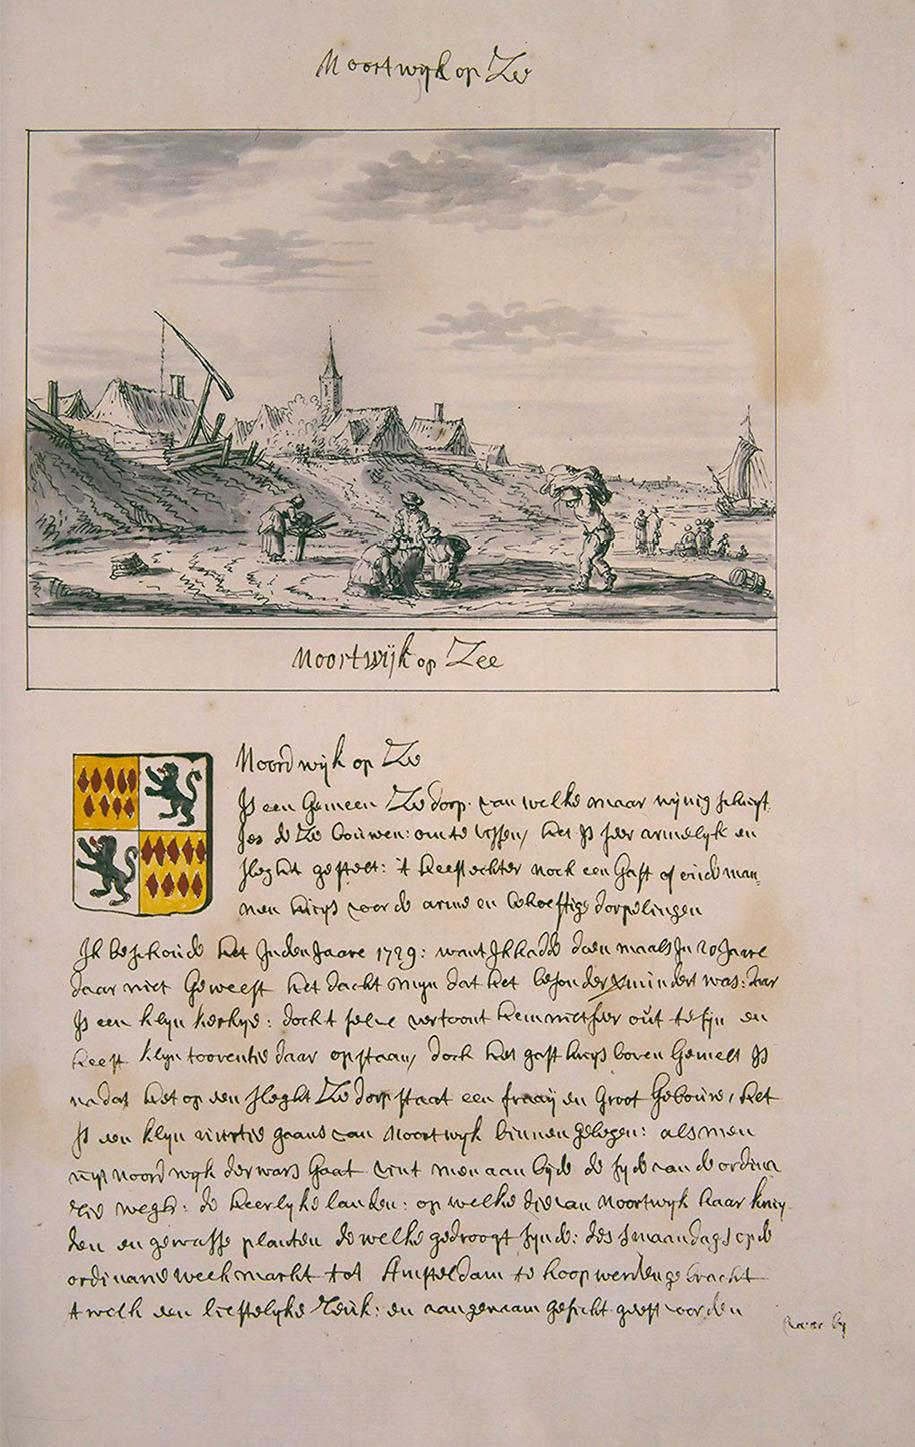 Noortwijk op Zee
Noortwijk op Zee
Noordwijk op Zee
Js een Gemeen Zee dorp. van welke maar wijnig
de Zee bouwen: om te vissen, het Js seer armelyk en
sleght gestelt: 't heeft echter noch een Gast of oude man„
nen huys voor de arme en behoeftige dorpelingen
Jk beschoude het Jn den Jaare 1729: want Jk hadde doen maals Jn 20 Jaare
daar niet Geweest het dacht mijn dat het besonder vermindert was: daar
Js een klyn kerkje: docht selve vertoont hem niet seer oüt te sijn en
heeft klyn toorentie daar op staan, doch het gast huys boven Gemelt Js
na dat het op een sleght Zee dorp staat een fraaij en Groot Gebouw, het
Js een klyn uurtie gaans van Noortwyk binnen gelegen: als men
na Noordwyk derwars Gaat vint men aan byde de syde van de ordina
rie wegh: de heerlyke landen: op welke die van Noortwyk haar kruy
den en gewasse planten de welke gedroogt synde: des smaandags op de
ordinare weekmarkt tot Amsteldam te koop werden gebracht
t welk een lieffelyke Reuk: en aangenaam gesicht geeft voor den